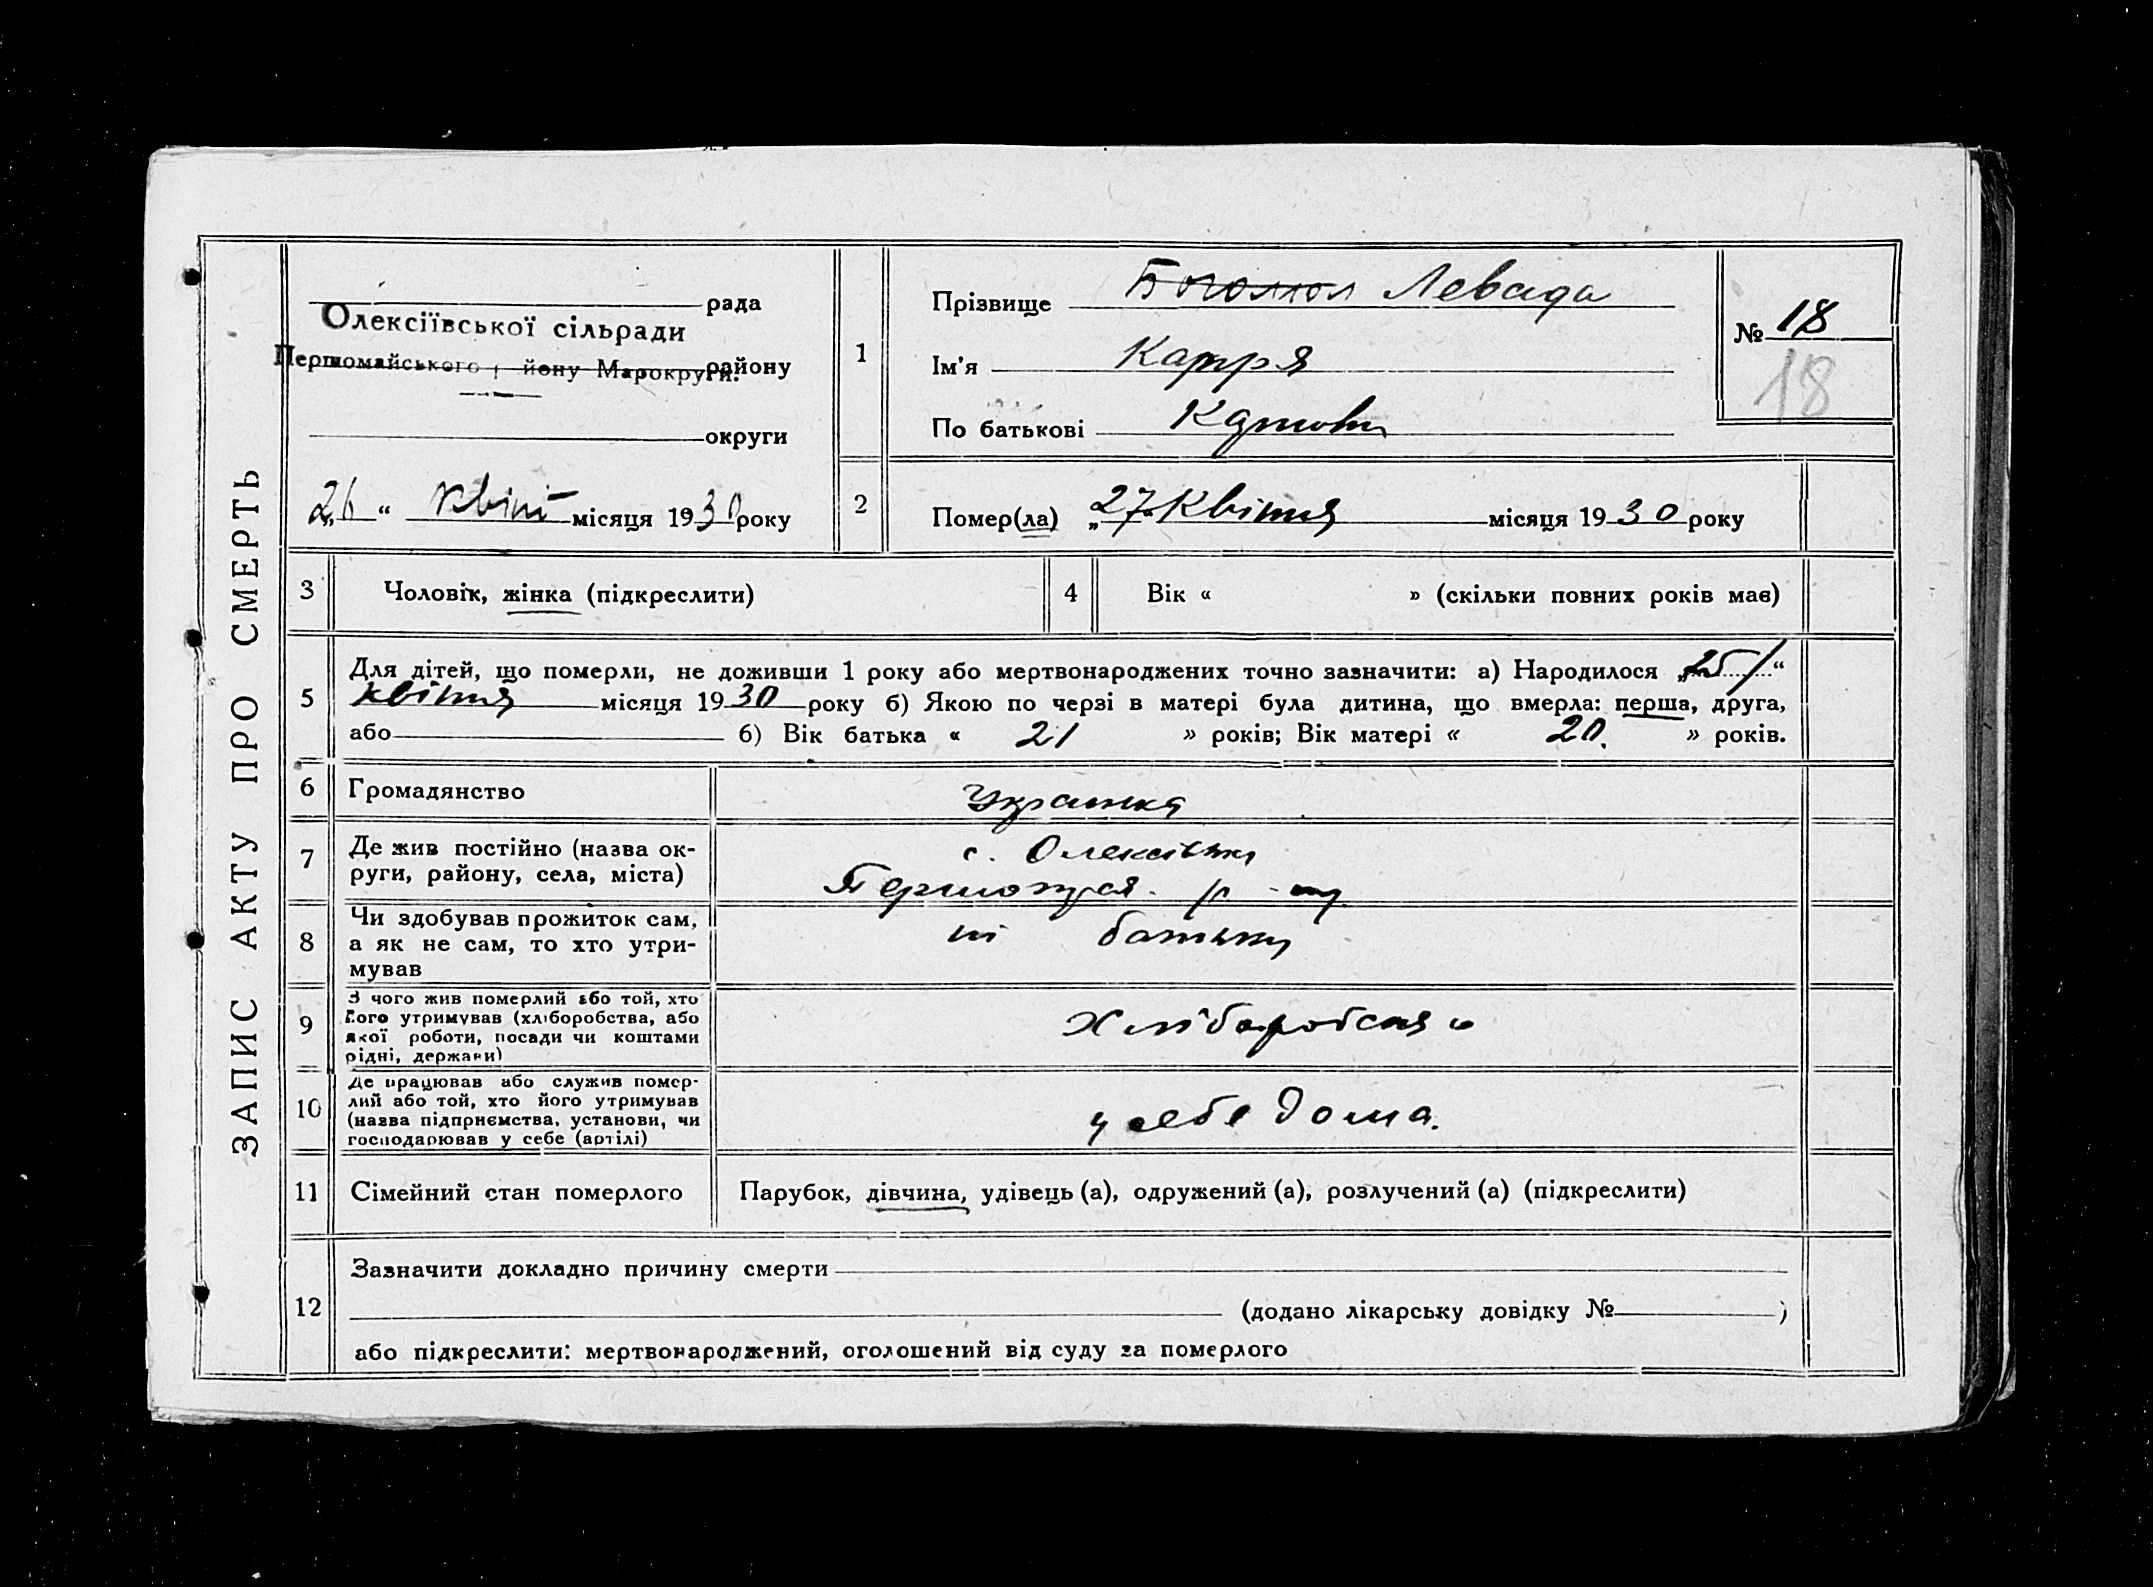 ЗАПИС АКТУ ПРО СМЕРТЬ
рада
Олексіївської сільради
Першомайського району Марокруги.
району
округи
„26“ квітн місяця 1930 року
1
Прізвище Боголюл Левада
Ім'я Катря
По батькові
№ 18
18
2
Помер(ла) „27“ Квітня місяця 1930 року
3
Чоловік, жінка (підкреслити)
4
Вік « » (скільки повних років має)
5
Для дітей, що померли, не доживши 1 року або мертвонароджених точно зазначити: а) Народилося „25“
квітня місяця 1930 року б) Якою по черзі в матері була дитина, що вмерла: перша, друга,
або б) Вік батька « 21 » років; Вік матері « 20. » років.
6
Громадянство
Українка
7
Де жив постійно (назва ок-
руги, району, села, міста)
с. Олексіївки
р-ну
8
Чи здобував прожиток сам,
а як не сам, то хто утри-
мував
ні батьки
9
З чого жив померлий або той, хто
його утримував (хліборобства, або
якої роботи, посади чи коштами
рідні, держави)
10
Де працював або служив помер-
лий або той, хто його утримував
(назва підприємства, установи, чи
господарював у себе (артілі)
у себе дома.
11
Сімейний стан померлого
Парубок, дівчина, удівець (а), одружений (а), розлучений (а) (підкреслити)
12
Зазначити докладно причину смерти
(додано лікарську довідку № )
або підкреслити: мертвонароджений, оголошений від суду за померлого